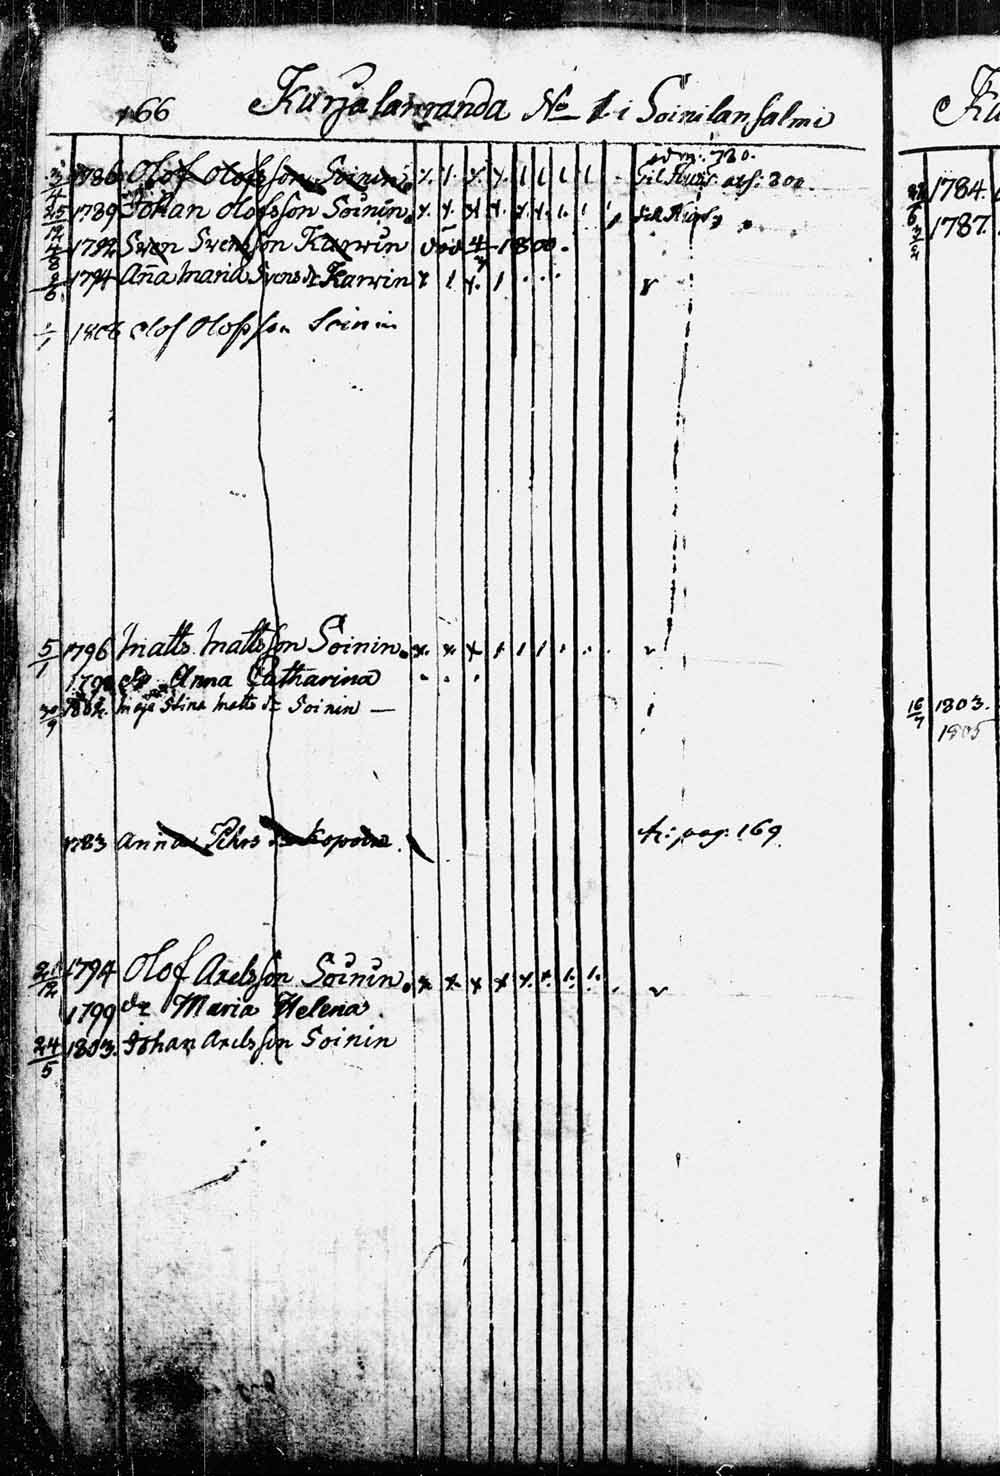 166 Kurjalanranda No 1 i Soinilansalmi
adm: 780.
3/4 1786 Olof Olofsson Soinin. x. 1. x. x. 1 1 1 1 Til afs: 800.
25/12 1789 Johan Olofsson Soinin. x. x. x. x. x. x. 1. 1 1
1792 Sven Svensson Karvin död 4/ 1800.
2/6 1794 Aña Maria Svens dr Karvin x 1 x. 1
1/1 1806 Olof Olofsson Soinin
5/1 1796 Matts Mattsson Soinin. x. x. x 1 1 1
dr Anna Catharina
30/9 1802. Maja Stina Matts dr Soinin —
1783 Anna Pehrs dr Kopoin. fr: pag: 169.
21/12 1794 Olof Axelsson Soinin. x x. x x x. x. 1. 1.
1799 dr Maria Helena.
24/5 1803. Johan Axelsson Soinin
Ku
1784.
1787.
16/7 1803.
1805